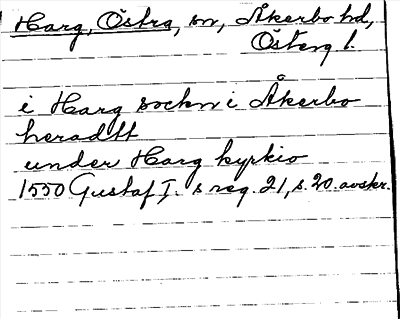 Harg, Östra, sn, Åkerbo hd,
Österg l.
i Harg sockn i Åkerbo
heradtt
under Harg kyrkio
1550 Gustaf I. s reg. 21, s. 20. avskr.